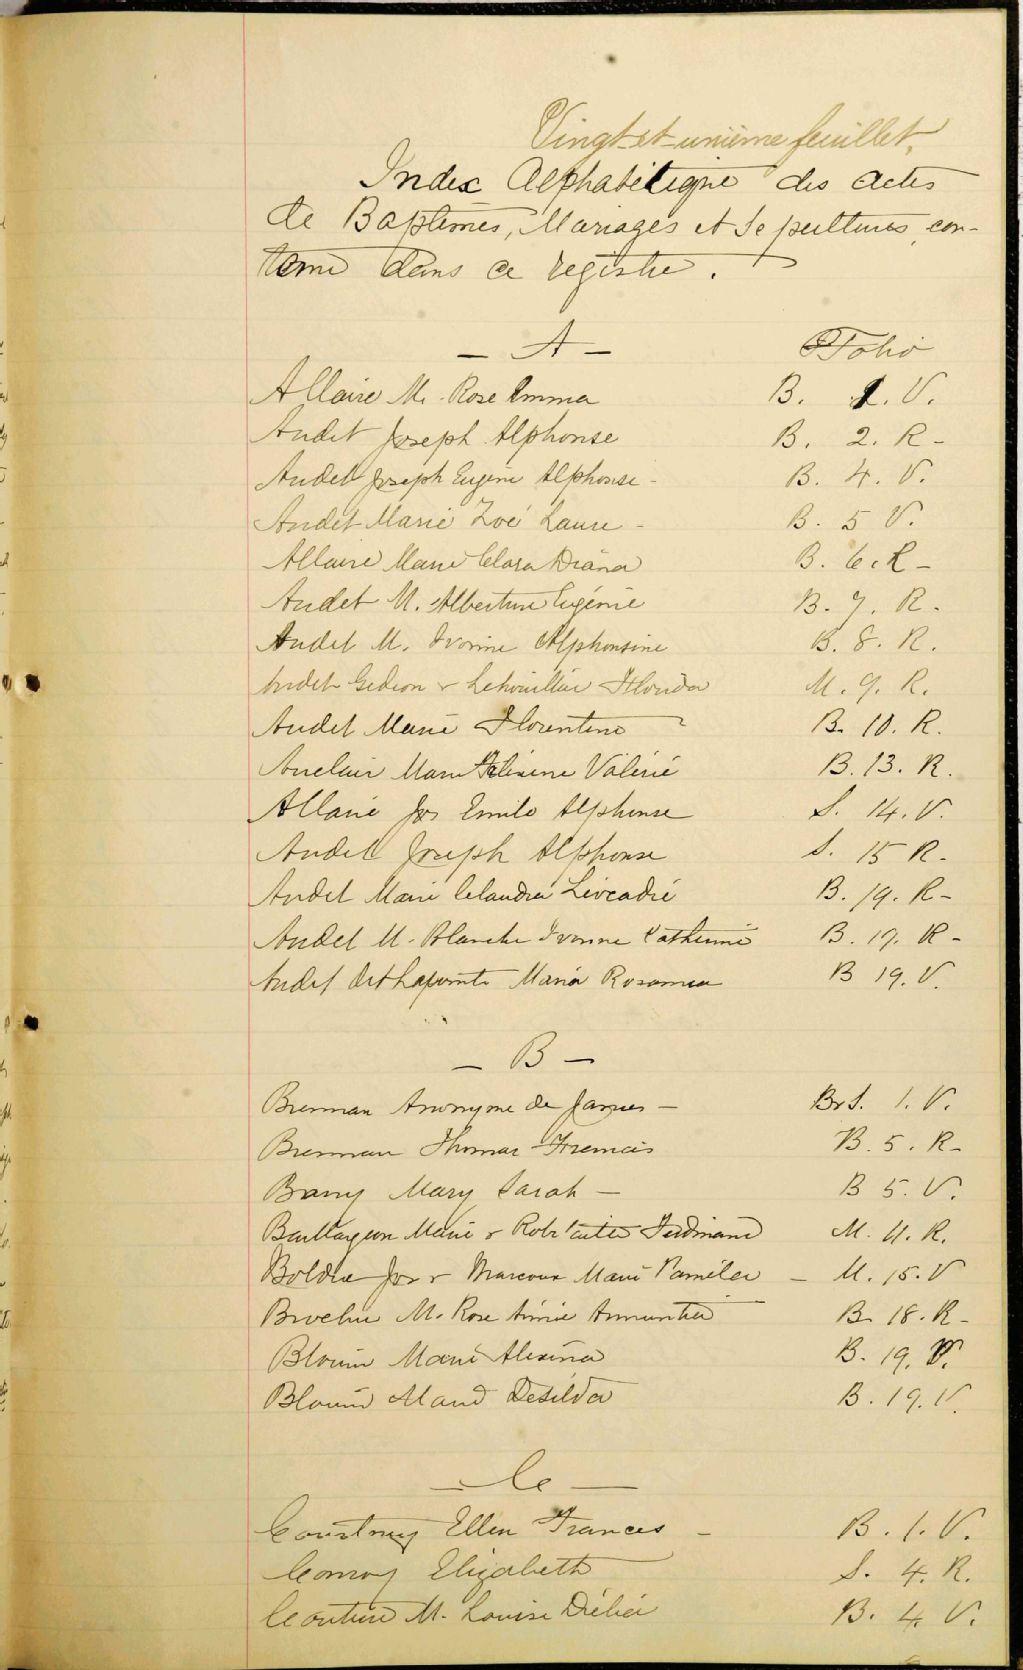 Vingt-et-unième feuillet.
Index Alphabétique des actes
de Baptêmes, Mariages et Sepultures, con-
tenu dans ce registre.
— A — Folio
Allaire M. Rose Emma B. 1. V.
Audet Joseph Alphonse B. 2. R -
Audet Joseph Eugène Alphonse - B. 4. V.
Audet Marie Zoé Laure - B. 5 V.
Allaire Marie Clara Diana B. 6. R -
Audet M. Albertine Eugénie B. 7. R -
Audet M. Ivonne Alphonsine B. 8. R.
Audet Gedeon & Florida M. 9. R.
Audet Marie Florentine B. 10. R.
Marie Valérie B. 13. R.
Allaire Jos Emile Alphonse S. 14. V.
Audet Joseph Alphonse S. 15 R -
Audet Marie Léocadie B. 19. R -
Audet M. Blanche Ivonne Catherine B. 19. R -
Audet dit Lapointe Maria Rosanna B 19. V.
— B —
Brennan Anonyme de James - B & S. 1. V.
Brennan Thomas Francis B. 5. R -
Barry Mary Sarah - B 5. V.
Baillargeon Marie & Ferdinand M. 11. R.
Bolduc Jos & Marcoux Marie Paméla - M. 15. V
Brochu M. Rose Aimée B. 18. R -
Blouin Marie Alexina B. 19. V.
Blouin Marie Desilda B. 19. V.
— C —
Courtney Ellen Frances - B. 1. V.
Conroy Elizabeth S. 4. R.
Couture M. Louise Délia B. 4. V.